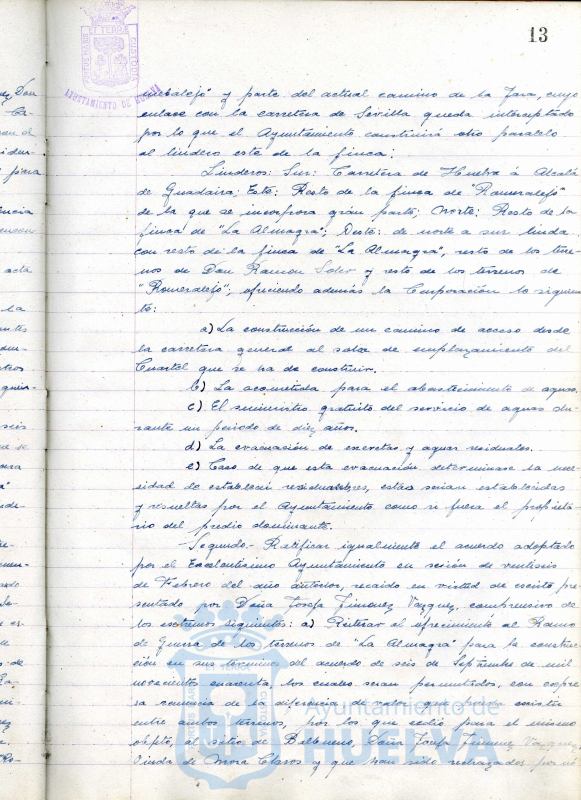 13
PORTUS MARIS ET TERRAE CUSTODIA
AYUNTAMIENTO DE HUELVA
y parte del actual camino de la Jara, cuyo
enlace con la carretera de Sevilla queda interceptado
por lo que el Ayuntamiento construirá otro paralelo
al lindero este de la finca:
Linderos: Sur: Carretera de Huelva á Alcalá
de Guadaira; Este: Resto de la finca de "Romeralejo"
de la que se incorpora gran parte; Norte: Resto de la
finca de "La Almagra"; Oeste: de norte a sur linda
con resto de la finca de "La Almagra", resto de los terre-
nos de Don Ramon Soler y resto de los terrenos de
"Romeralejo", ofreciendo además la Corporación lo siguien-
te:
a) La construcción de un camino de acceso desde
la carretera general al solar de emplazamiento del
Cuartel que se ha de construir.
b) La acometida para el abastecimiento de aguas.
c) El suministro gratuito del servicio de aguas du-
rante un periodo de diez años.
d) La evacuación de excretas y aguas residuales.
e) Caso de que esta evacuación determinase la nece-
sidad de establecer estas serian establecidas
y resueltas por el Ayuntamiento como si fuera el propieta-
rio del predio dominante.
Segundo.- Ratificar igualmente el acuerdo adoptado
por el Excelentisimo Ayuntamiento en sesión de veintiseis
de Febrero del año anterior, recaido en virtud de escrito pre-
sentado por Doña Josefa Jimenez Vazquez, comprensivo de
los extremos siguientes: a) Reiterar el ofrecimiento al Ramo
de Guerra de los terrenos de "La Almagra" para la construc-
ción en sus terminos del acuerdo de seis de Septiembre de mil
novecientos cuarenta, los cuales seran permutados, con expre-
sa renuncia de la diferencia de valor que pueda existir
entre ambos terrenos, por los que cedió para el mismo
objeto, al sitio de Balbueno, Doña Josefa Jimenez Vazquez,
Viuda de Mora Claros y que han sido rechazados por no
Ayuntamiento de
HUELVA